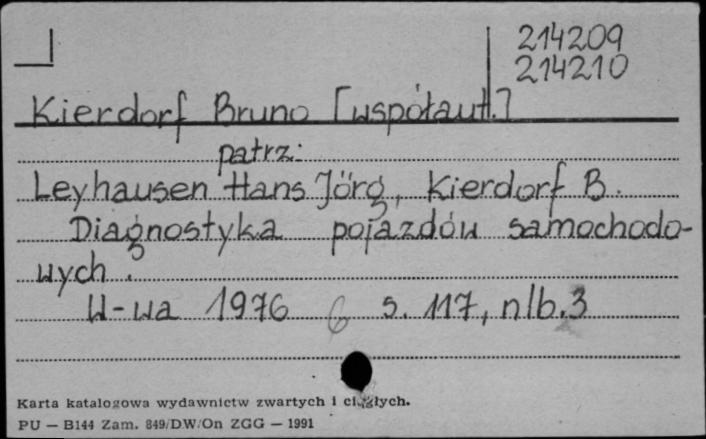 214209
214210
Kierdorf Bruno [współaut.]
patrz:
Leyhausen Hans Jörg, Kierdorf B.
Diagnostyka pojazdów samochodo-
wych.
W-wa 1976 6 s. 117, nlb. 3
Karta katalogowa wydawnictw zwartych i ciągłych.
PU — B144 Zam. 849/DW/On ZGG — 1991